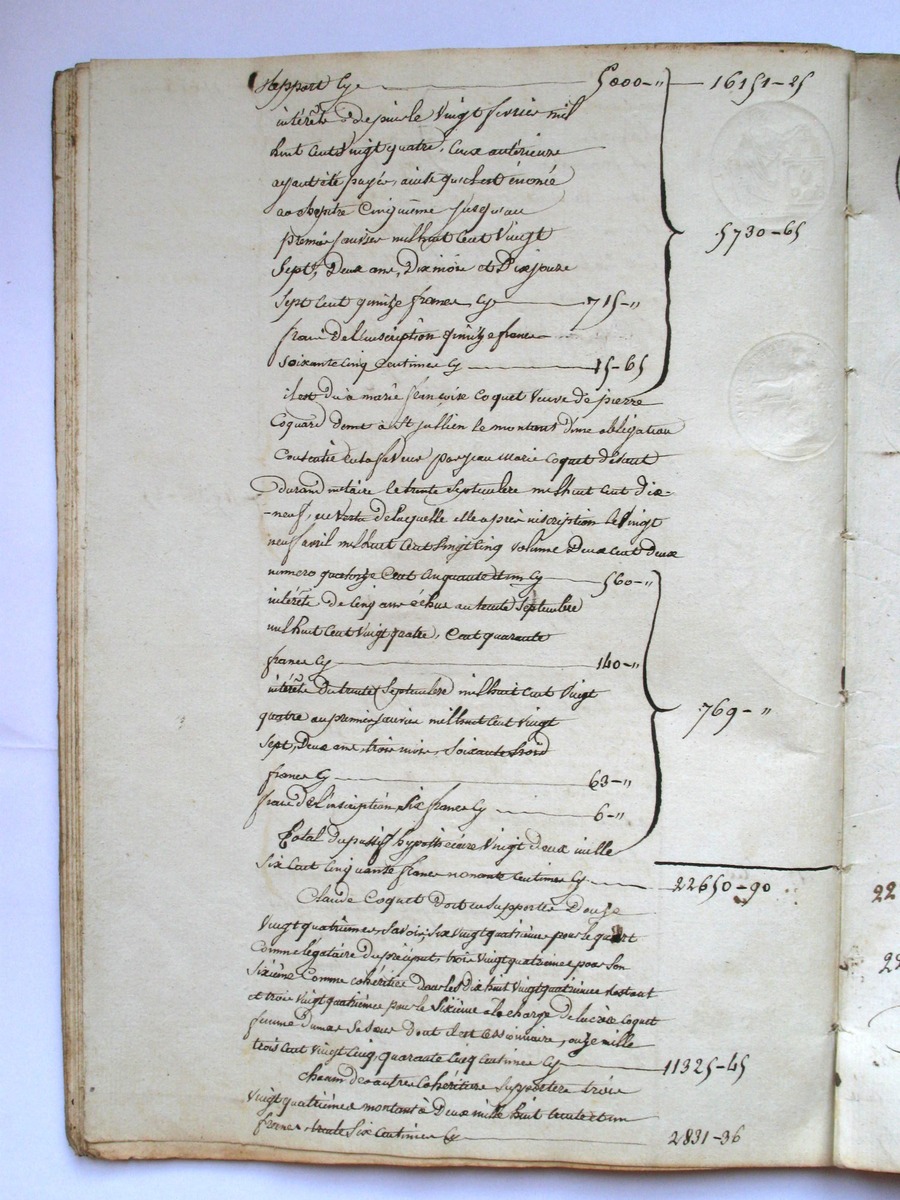 Rapport Cy 5000-" 16151-25
intérêts depuis le Vingt fevrier mil
huit Cent Vingt quatre, Ceux antérieurs
ayant été payés, ainsi qu'il est énoncé
au chapitre Cinquième jusqu'au
premier janvier mil huit Cent Vingt
Sept, Deux ans, Dix mois et Dix jours 5730-65
Sept Cent quinze francs, Cy 715-"
frais de l'inscription quinze francs
soixante Cinq Centimes Cy 15-65
il est dû à marie françoise Coquet Veuve de pierre
Coquard demt à St jullien le montant d'une obligation
Consentie en sa faveur par jean Marie Coquet devant
Durand notaire le trente Septembre mil huit Cent dix-
-neuf, en Vertu de laquelle elle a pris inscription le Vingt
neuf avril mil huit Cent Vingt Cinq Volume Deux Cent Deux
numero quatorze Cent Cinquante et un Cy 560-"
intérêts de Cinq ans échus au trente Septembre
mil huit Cent Vingt quatre, Cent quarante
francs Cy 140-"
intérêts du trente Septembre mil huit Cent Vingt
quatre au premier janvier mil huit Cent Vingt 769-"
Sept, Deux ans, trois mois, Soixante trois
francs Cy 63-"
frais de l'inscription, Six francs Cy 6-"
Total du passif hypothécaire Vingt Deux mille
Six Cent Cinquante francs nonante Centimes Cy 22650-90
Claude Coquet Doit en Supporter Douze
Vingt quatrièmes, Savoir, Six Vingt quatrième pour le quart
Comme légataire du préciput, trois Vingt quatrièmes pour Son
Sixième Comme cohéritier dans les dix huit Vingt quatrièmes restant
et trois Vingt quatrièmes pour le Sixième à la charge de Lucrèce Coquet
femme Dumas Sa Sœur Dont il est Cessionnaire, onze mille
trois Cent Vingt Cinq, quarante Cinq Centimes Cy 11325-45
Chacun des autres Cohéritiers Supportera trois
Vingt quatrièmes montant à Deux mille huit Cent trente et un
francs, trente Six Centimes Cy 2831-36
22
22